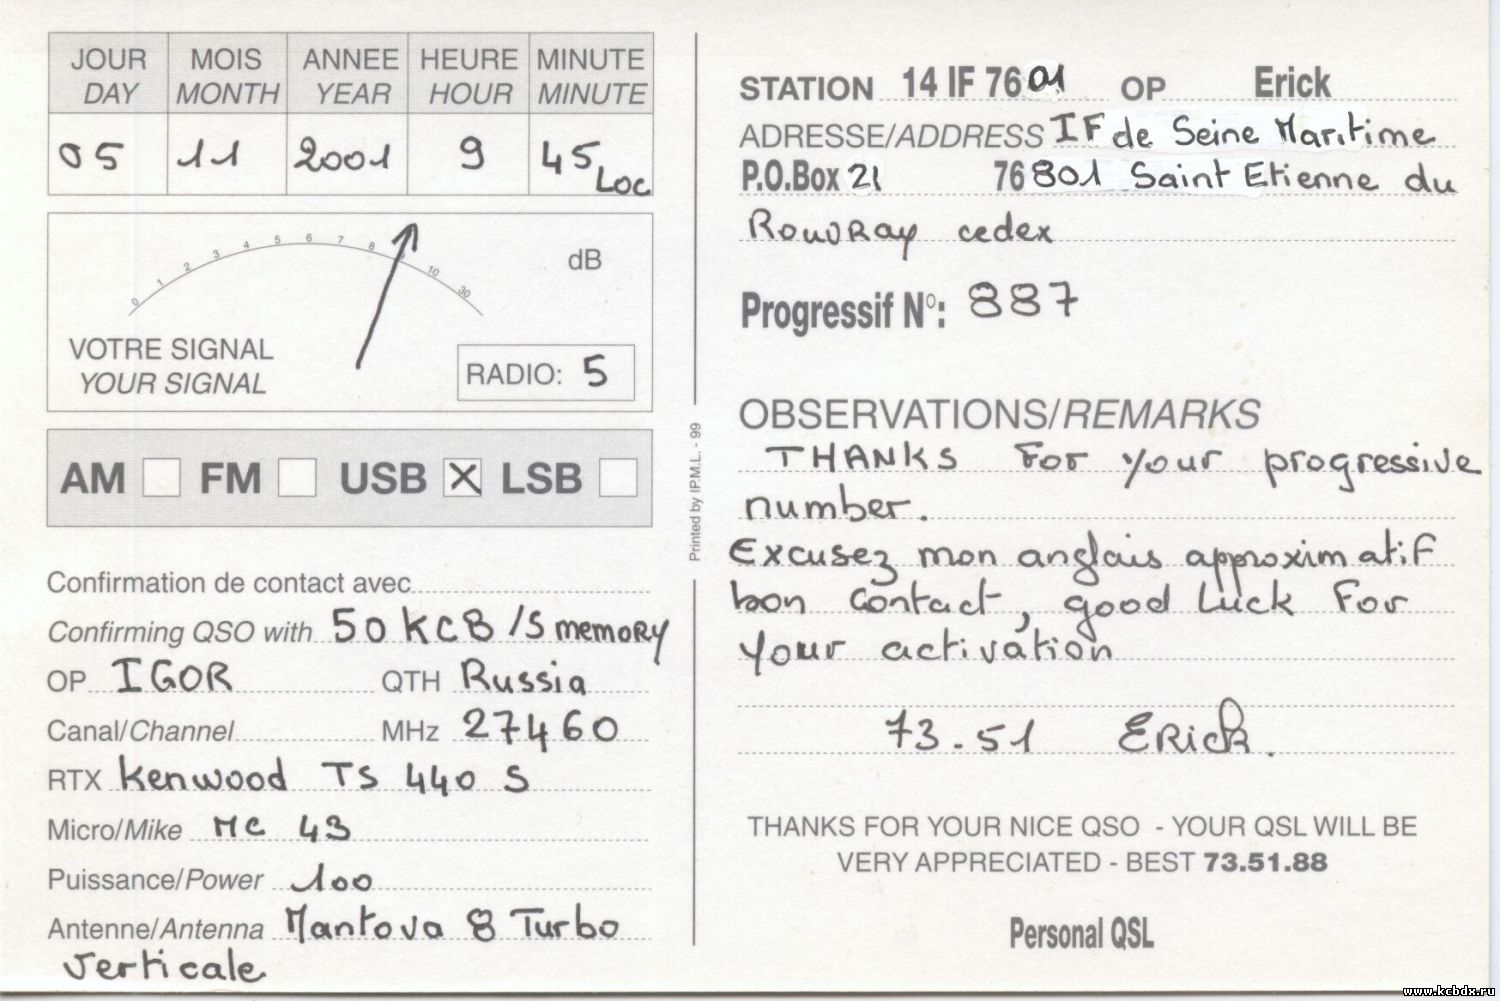 JOUR MOIS ANNEE HEURE MINUTE
DAY MONTH YEAR HOUR MINUTE
05 11 2001 9 45 Loc
0 1 2 3 4 5 6 7 8 9 10 30
dB
VOTRE SIGNAL
YOUR SIGNAL
RADIO: 5
AM FM USB X LSB
Confirmation de contact avec
Confirming QSO with 50 KCB /S memory
OP IGOR QTH Russia
Canal/Channel MHz 27460
RTX Kenwood TS 440 S
Micro/Mike MC 43
Puissance/Power 100
Antenne/Antenna Mantova 8 Turbo
Verticale
Printed by I.P.M.L. - 99
STATION 14 IF 7601 OP Erick
ADRESSE/ADDRESS IF de Seine Maritime
P.O.Box 21 76801 Saint Etienne du
Rouvray cedex
Progressif N°: 887
OBSERVATIONS/REMARKS
THANKS For your progressive
number.
Excusez mon anglais approximatif
bon contact, good Luck For
your activation
73.51 Erick.
THANKS FOR YOUR NICE QSO - YOUR QSL WILL BE
VERY APPRECIATED - BEST 73.51.88
Personal QSL
www.kcbdx.ru